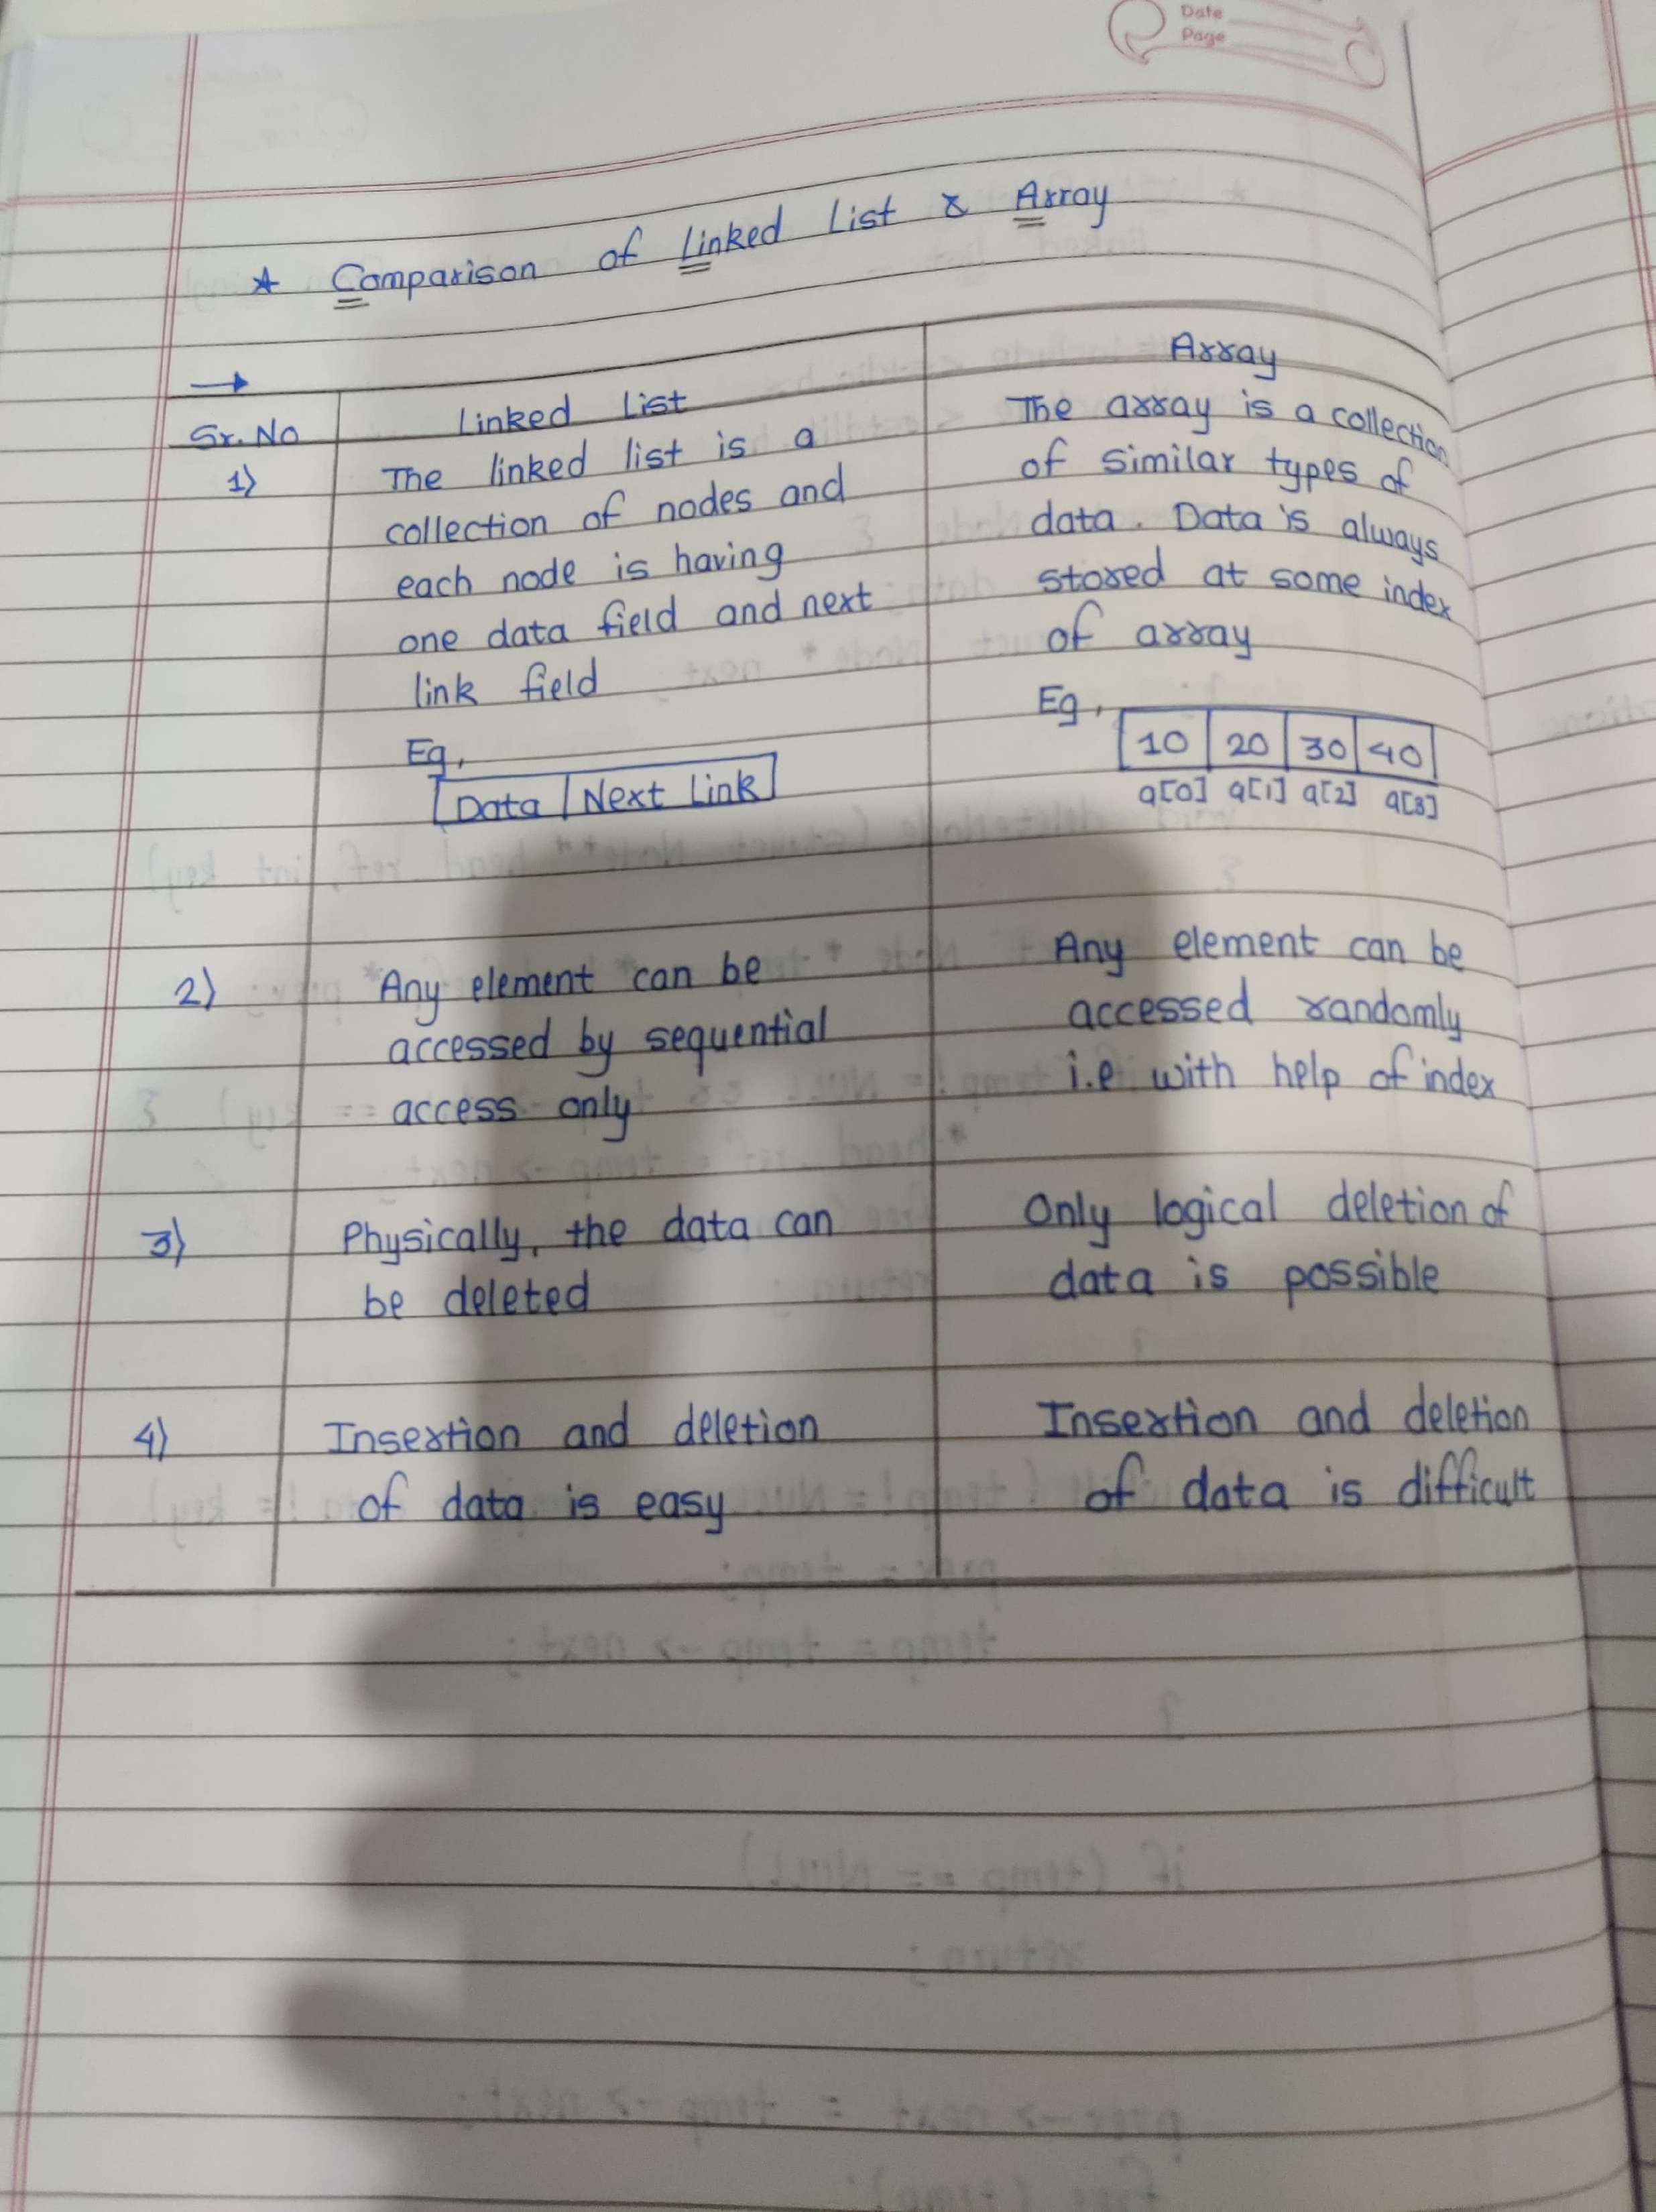 Date
Page
* Comparison of Linked List & Array
→
Sr. No
Linked List
Array
1)
The linked list is a
collection of nodes and
each node is having
one data field and next
link field
Eg,
Data | Next Link
The array is a collection
of similar types of
data. Data is always
stored at some index
of array
Eg,
10 | 20 | 30 | 40
a[0] a[1] a[2] a[3]
2)
Any element can be
accessed by sequential
access only
Any element can be
accessed randomly
i.e with help of index
3)
Physically, the data can
be deleted
Only logical deletion of
data is possible
4)
Insertion and deletion
of data is easy
Insertion and deletion
of data is difficult